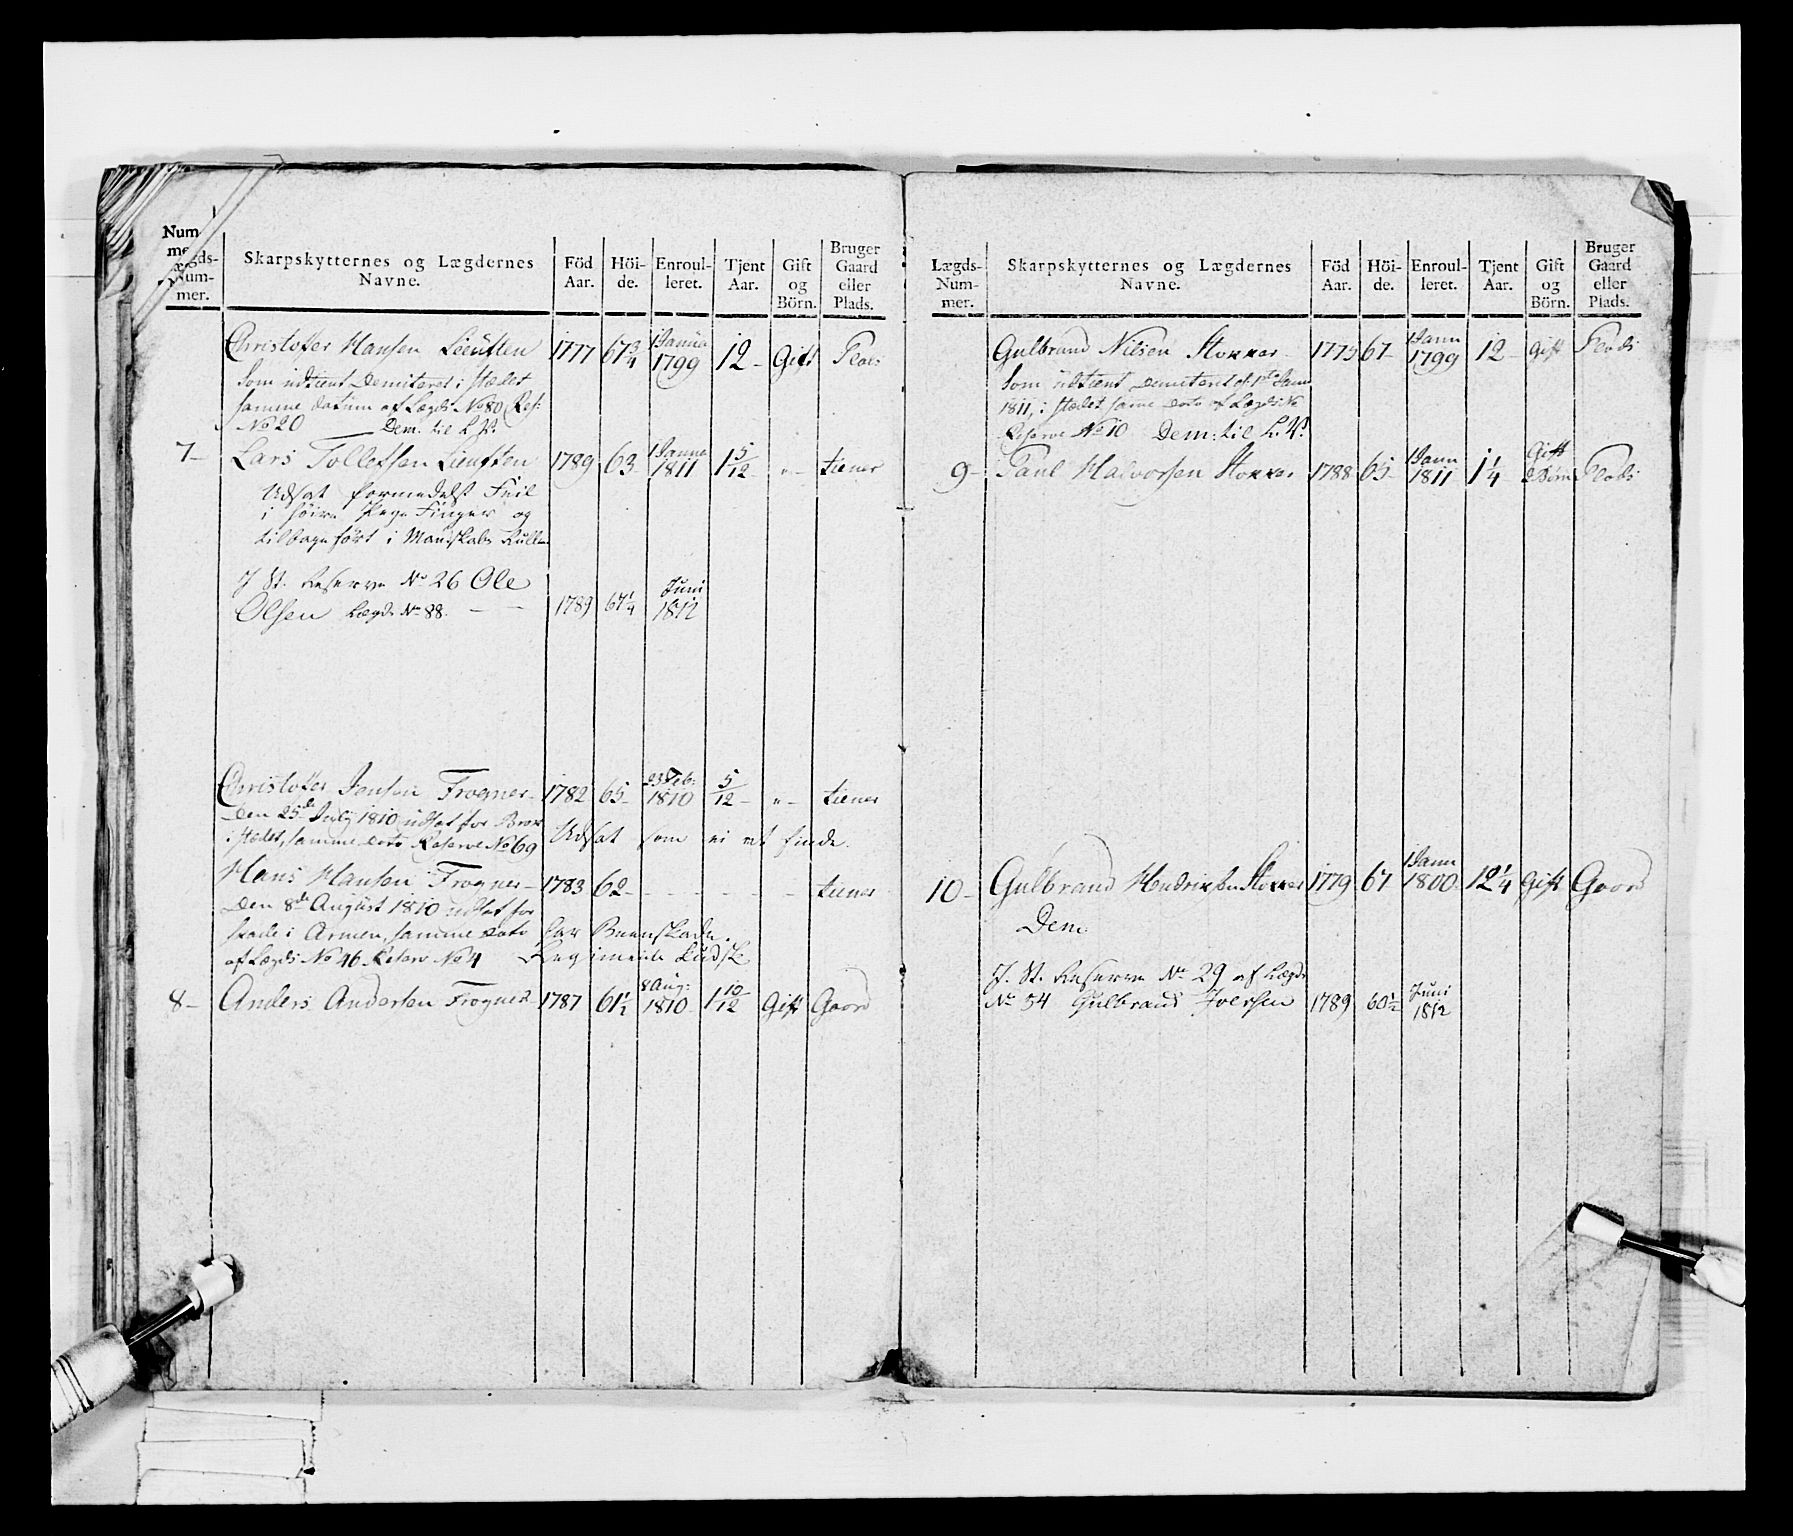 Num-
mer.
Lægds-
Num-
mer.
Skarpskytternes og Lægdernes
Navne.
Föd
Aar.
Höi-
de.
Enroul-
leret.
Tjent
Aar.
Gift
og
Börn.
Bruger
Gaard
eller
Plads.
Christoffer Hansen 1777 67 3/4 1 Janua 1799 12 - Gift Plads
Som udtient Demiteret i Stædet
samme datum af Lægds No 80 Res:
No 20 Dem. til L. V.
7 - Lars Tollefsen 1789 63 - 1 Janua 1811 1 5/12 " - tiener
Udsat formedelst Feil
i höire Pege Finger og
tilbageført i Mandskabs Rullen
I St. Reserve No 26 Ole
Olsen Lægds No 88. - - 1789 67 1/4 Juni 1812
Christoffer Jensen Frogner - 1782 65 - 23 Feb: 1810 5/12 - " - tiener
Den 25de July 1810 udsat for Brok
i Stædet, samme dato Reserve No 69
Udsat som ei at finde.
Hans Hansen Frogner - 1783 62 - - - - - tiener
Den 8de August 1810 udsat for
skade i Armen, samme dato har Beenskade.
af Lægds No 46 Reserv No 4 Regiments
8 - Anders Andersen Frogner 1787 61 1/2 8 Aug: 1810 1 10/12 Gift Gaard
Lægds-
Num-
mer.
Skarpskytternes og Lægdernes
Navne.
Föd
Aar.
Höi-
de.
Enroul-
leret.
Tjent
Aar.
Gift
og
Börn.
Bruger
Gaard
eller
Plads.
Gulbrand Nilsen Stokker - 1775 67 - 1 Janu 1799 12 - Gift Plads
Som udtient Demiteret d: 1ste Janu
1811, i stædet samme dato af Lægds No
Reserve No 10 Dem: til L. V.
9 - Paul Halvorsen Stokker 1788 65 - 1 Janu 1811 1 1/4 Gift Börn Plads
10 - Gulbrand Hendriksen Stokker 1779 67 1 Janu 1800 12 1/4 Gift Gaard
Dem
I St. Reserve No 29 af Lægds
No 54 Gulbrand Iversen 1789 60 1/2 Juni 1812